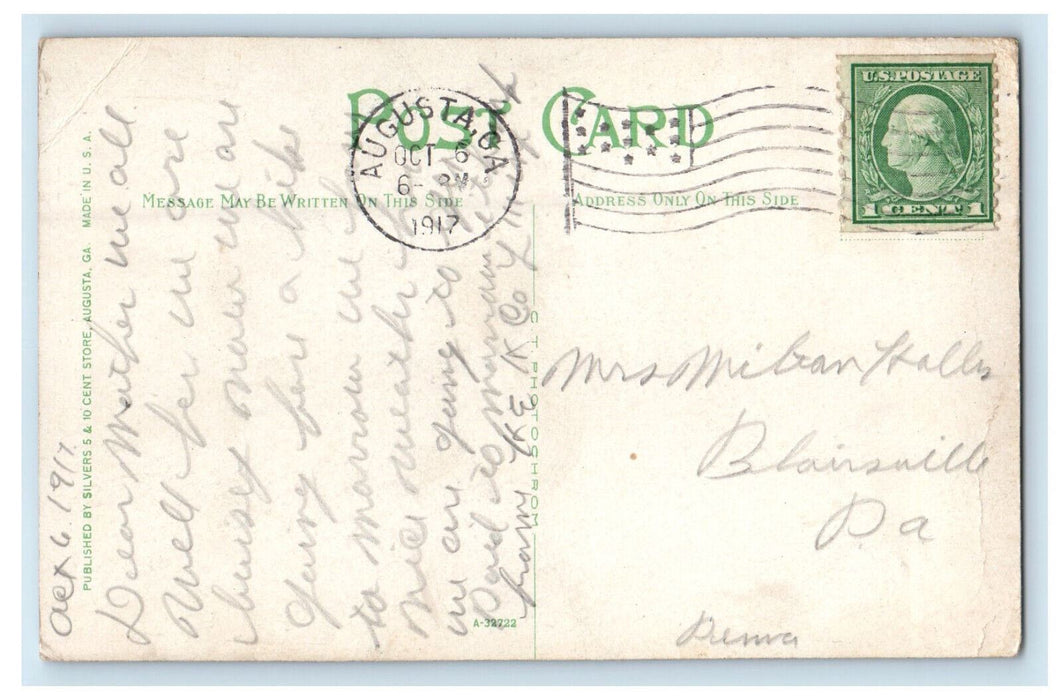 POST CARD
MESSAGE MAY BE WRITTEN ON THIS SIDE
ADDRESS ONLY ON THIS SIDE
AUGUSTA, GA
OCT 6
6 - PM
1917
U.S. POSTAGE
1 CENT 1
MADE IN U. S. A.
PUBLISHED BY SILVERS 5 & 10 CENT STORE, AUGUSTA, GA.
Oct 6. 1917.
Dear Mother we all
Well for we are
buisey now we are
going for a hike
to morrow we
nice weather
we are going to
Paid to morrow
from
C T PHOTOCHROM
A-32722
Mrs Milton
Blairsville
Pa
Penna